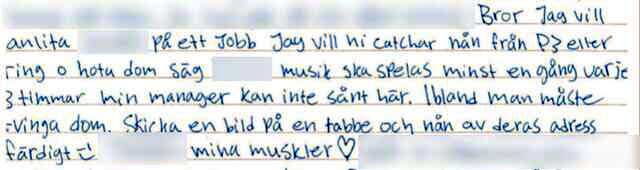 Bror Jag vill
anlita på ett Jobb Jag vill ni catchar nån från P3 eller
ring o hota dom säg musik ska spelas minst en gång varje
3 timmar min manager kan inte sånt här. Ibland man måste
tvinga dom. Skicka en bild på en tabbe och nån av deras adress
färdigt =) mina muskler♡